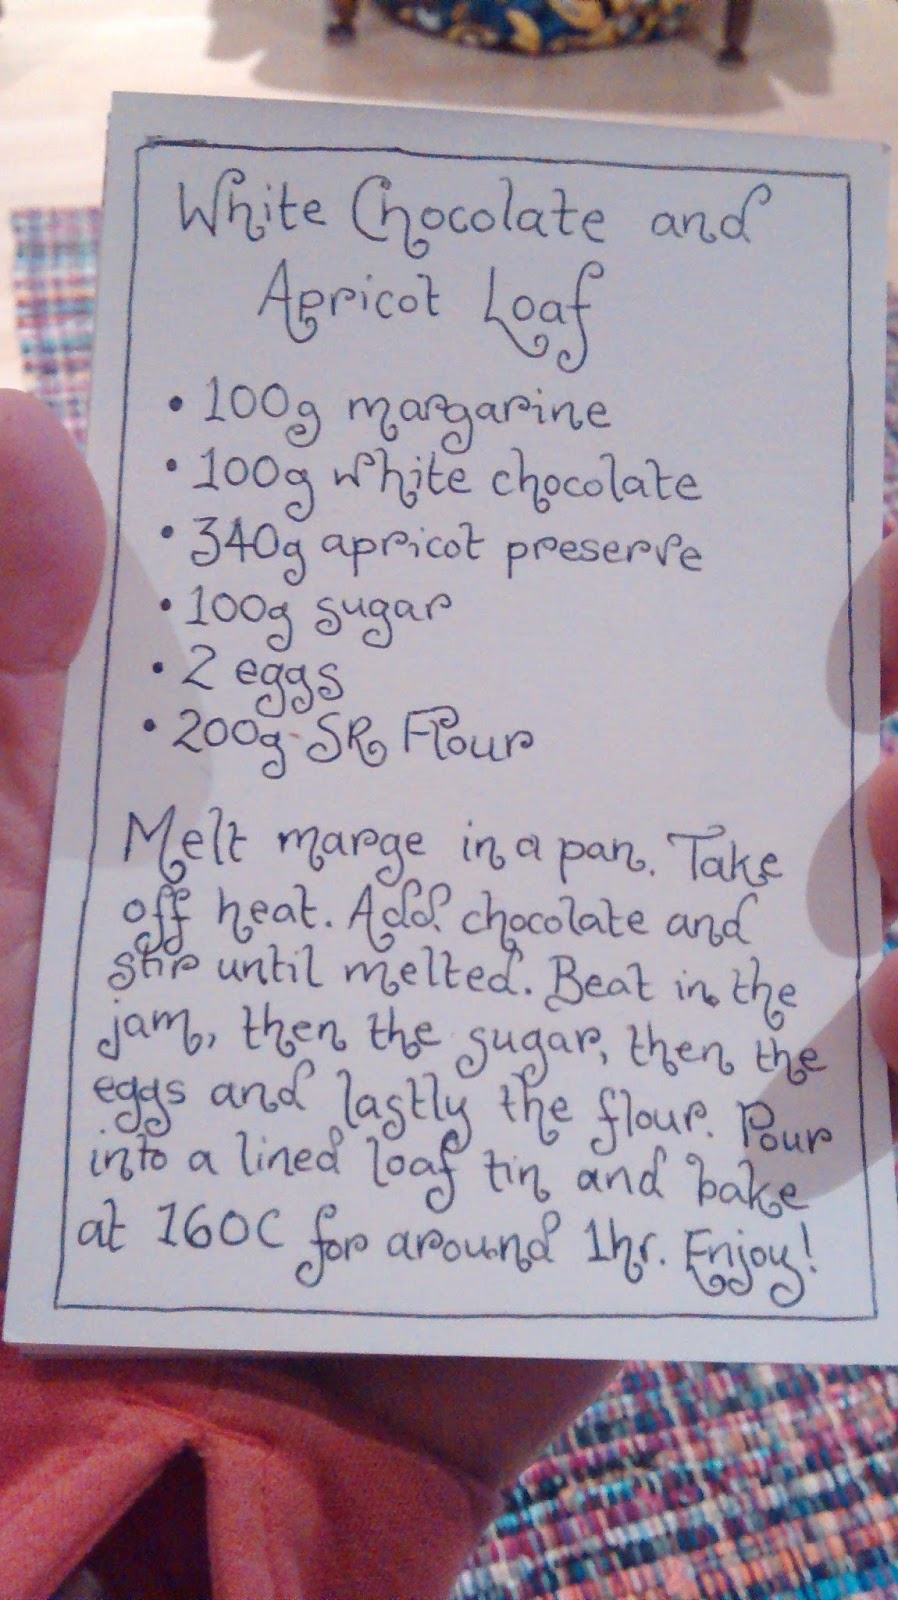 White Chocolate and
Apricot Loaf
• 100g margarine
• 100g white chocolate
• 340g apricot preserve
• 100g sugar
• 2 eggs
• 200g SR Flour
Melt marge in a pan. Take
off heat. Add chocolate and
stir until melted. Beat in the
jam, then the sugar, then the
eggs and lastly the flour. Pour
into a lined loaf tin and bake
at 160C for around 1hr. Enjoy!